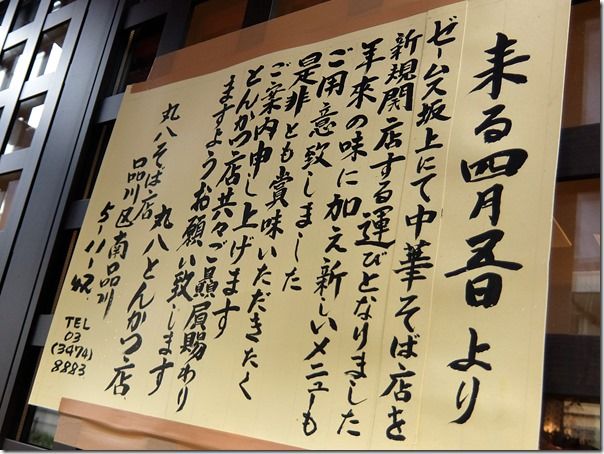 来る四月五日より
ゼームス坂上にて中華そば店を
新規開店する運びとなりました
年来の味に加え新しいメニューも
ご用意致しました
是非とも賞味いただきたく
ご案内申し上げます
とんかつ店共々ご贔屓賜わり
ますようお願い致します
丸八とんかつ店
丸八そば店
品川区南品川
5-11-
TEL
03
(3474)
8883